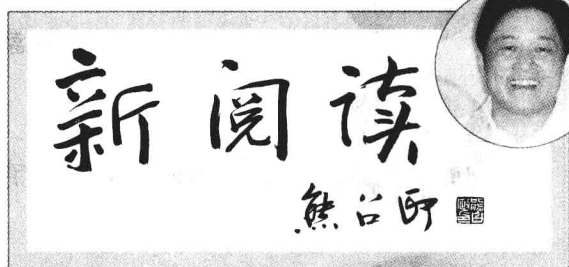 新阅读
熊召政